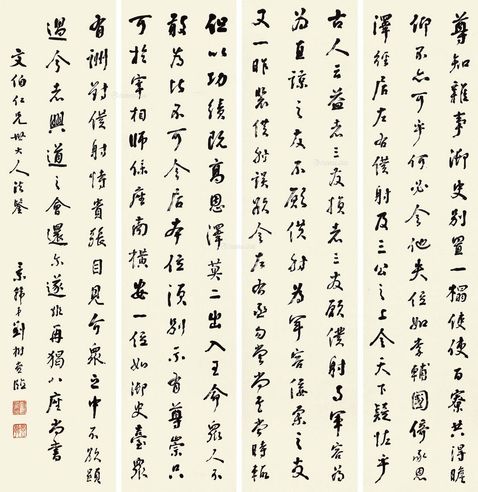 尊知雜事御史別置一榻使使百寮共得瞻
仰不亦可乎何必令他失位如李輔國倚承恩
澤徑居左右僕射及三公之上令天下疑怪乎
古人云益者三友損者三友願僕射與軍容為
為直諒之友不願僕射為軍容佞柔之友
又一昨裴僕射誤欲令左右丞勾當尚書當時輒
但以功績既高恩澤莫二出入王命眾人不
敢為比不可令居本位須別示有尊崇只
可於宰相師保座南橫安一位如御史臺眾
有詶對僕射恃貴張目見介眾之中不欲顯
過今者興道之會還爾遂非再猲八座尚書
文伯仁兄世大人法鑒 景韓弟劉樹堂臨